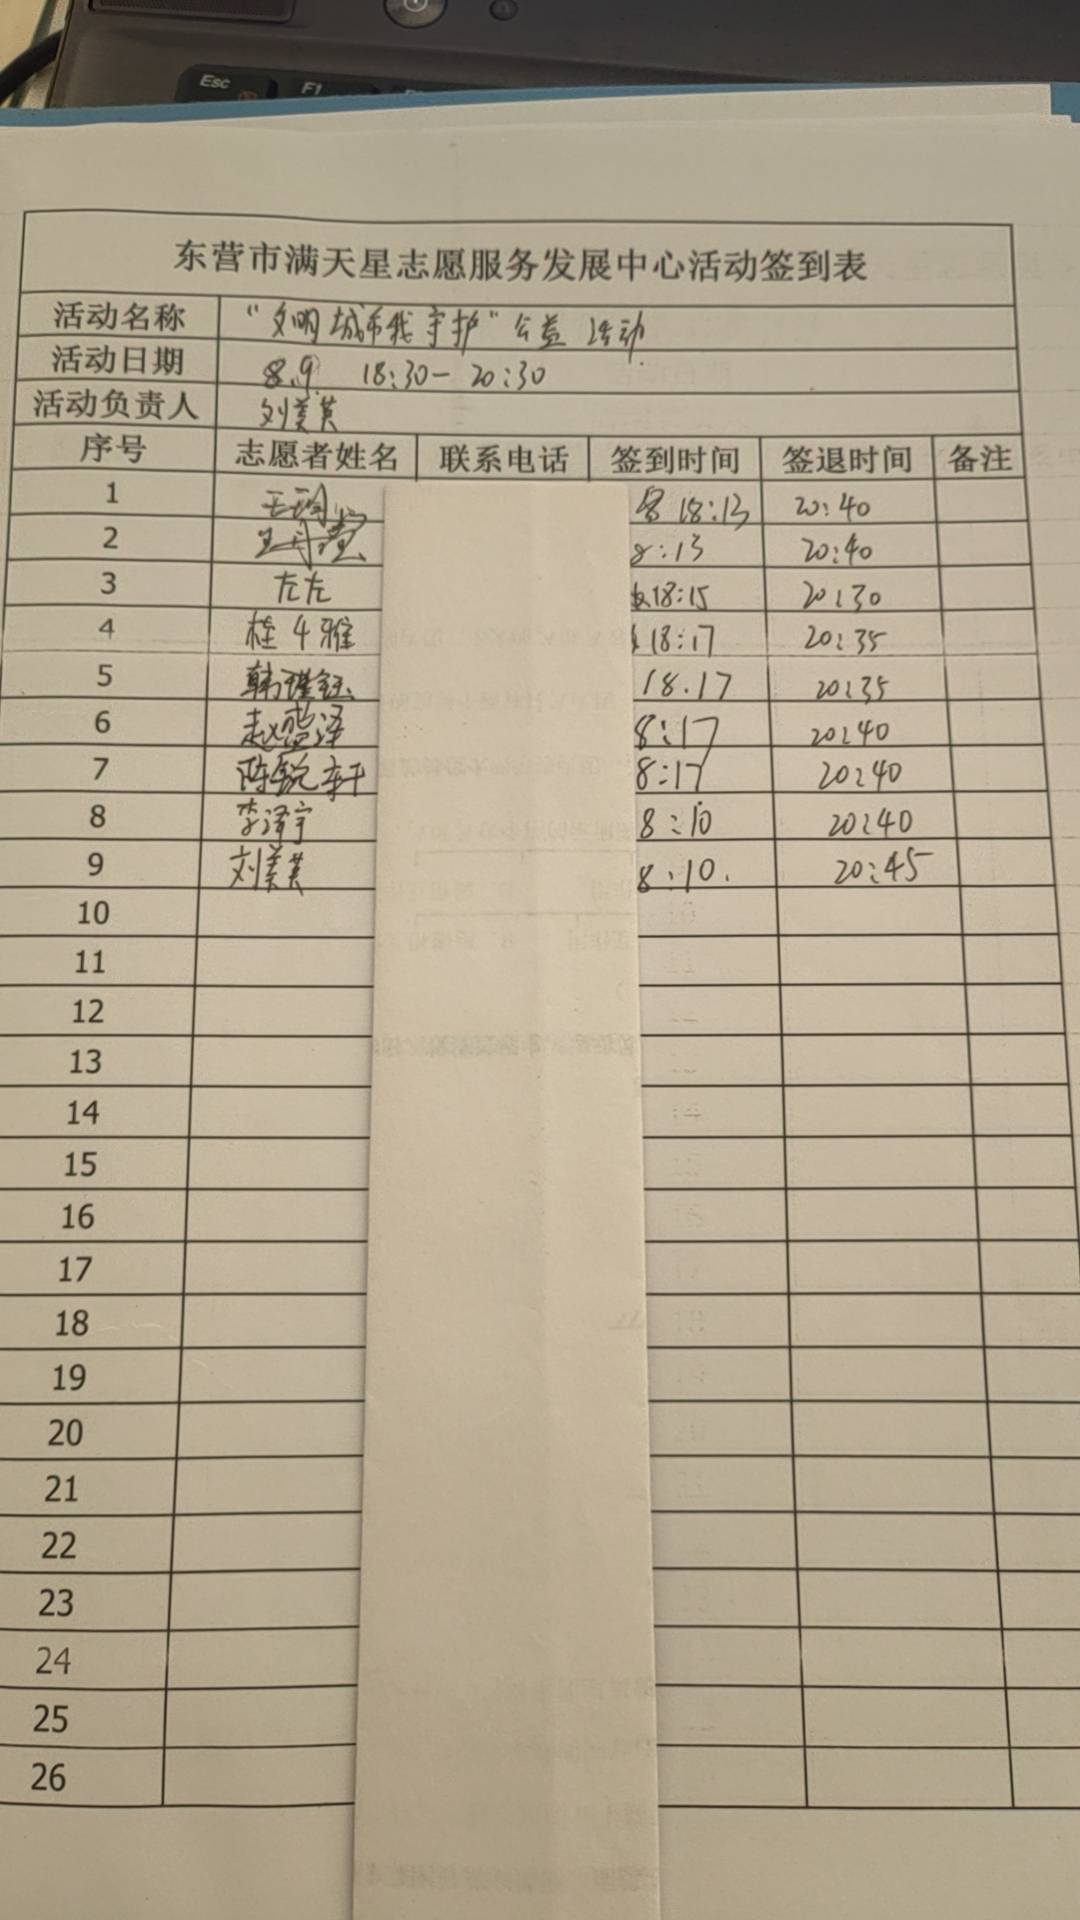 Esc F1
东营市满天星志愿服务发展中心活动签到表
活动名称 “文明城市我守护”公益活动
活动日期 8.9 18:30-20:30
活动负责人 刘美英
序号 志愿者姓名 联系电话 签到时间 签退时间 备注
1 18:13 20:40
2 8:13 20:40
3 左左 18:15 20:30
4 桂千雅 18:17 20:35
5 韩瑾钰 18.17 20:35
6 赵盈泽 8:17 20:40
7 陈锐轩 8:17 20:40
8 李泽宇 8:10 20:40
9 刘美英 8:10. 20:45
10
11
12
13
14
15
16
17
18
19
20
21
22
23
24
25
26